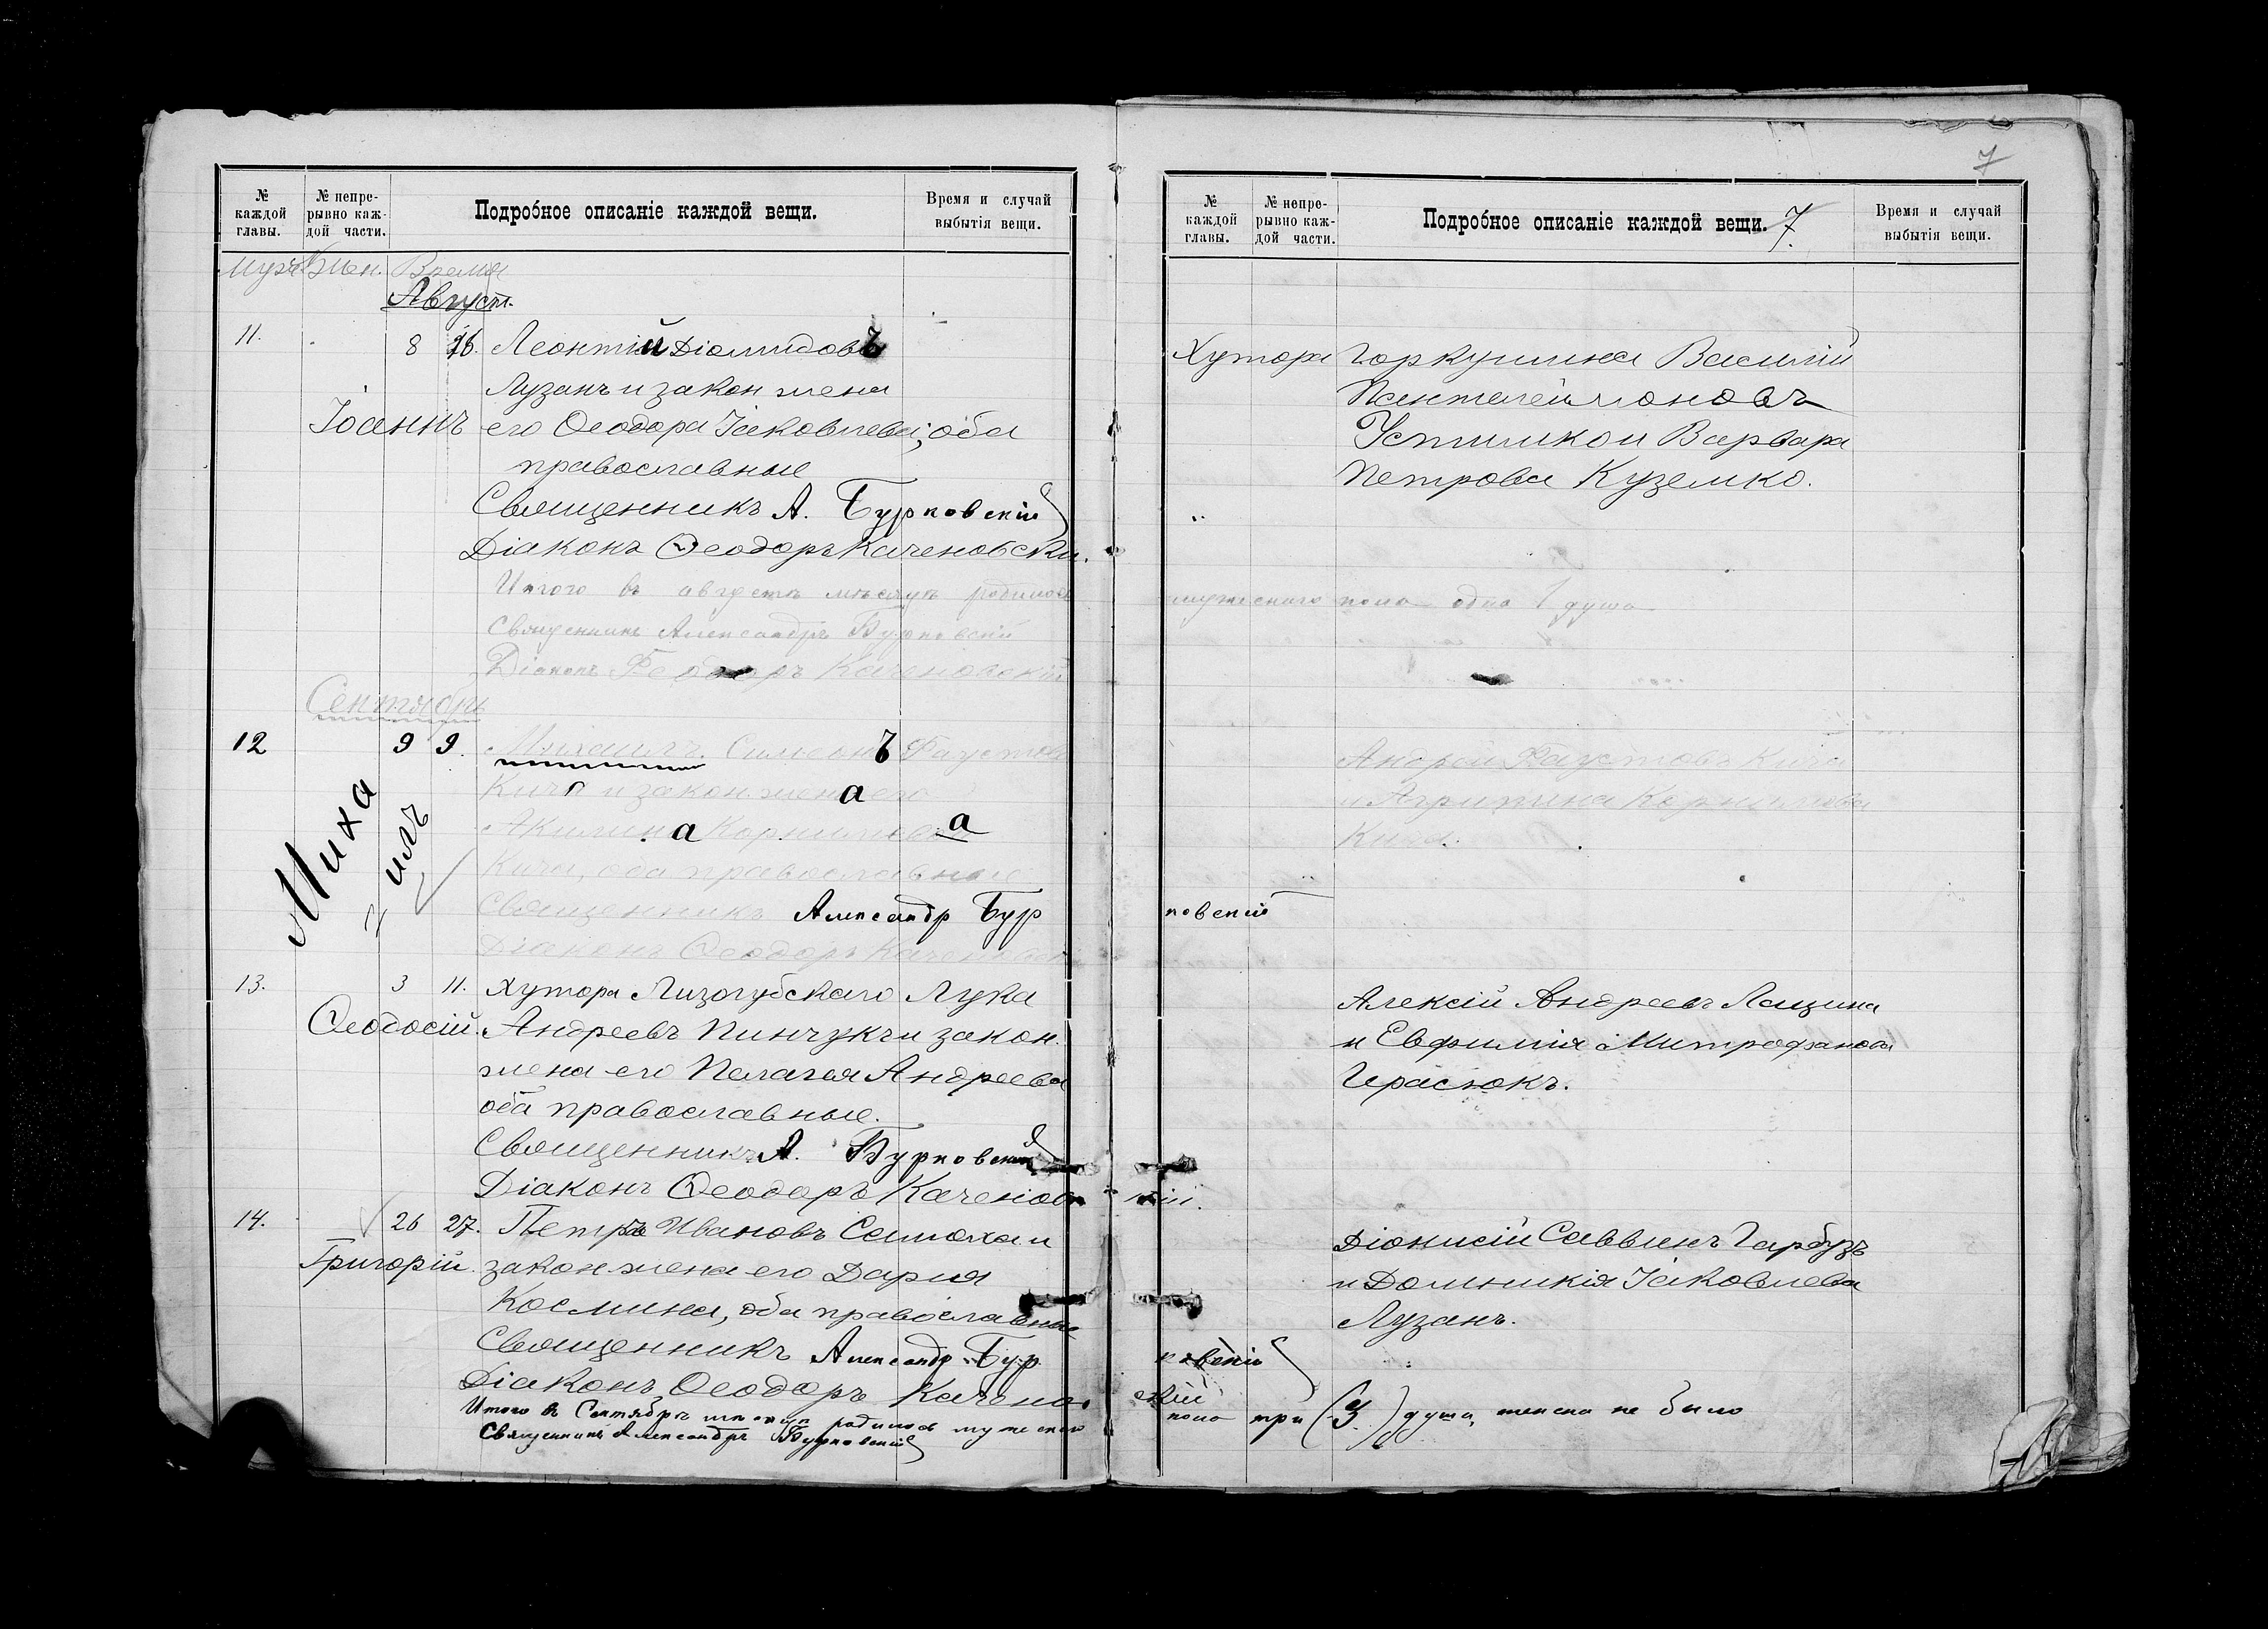 № каждой главы.
№ непре-рывно каж-дой части.
Подробное описаніе каждой вещи.
Время и случай выбытія вещи.
Муж. Жен. Время
Август.
11. 8 26. Леонтій Діомидовъ
Лузанъ и закон жена
Іоаннъ его Ѳеодора Іаковлева, оба
православные
Священникъ А. Бурковскій
Діаконъ Ѳеодоръ Каченовскій.
Итого въ августѣ мѣсяцѣ родилось
Священникъ Александръ Бурковскій
Діаконъ Феодоръ Каченовскій
Сентябрь
12 9 9. Михаилъ. Симеонъ Фаустовъ
Кича и закон. жена его
Миха
илъ
Акилина Корнилиева
Кича, оба православные
Священникъ Александр Бур
Діаконъ Ѳеодоръ Каченовскій
13. 3 11. Хутора Лизогубскаго Лука
Ѳеодосій. Андреевъ Пинчукъ и закон.
жена его Пелагея Андреева
оба православные.
Священникъ А. Бурковскій
Діаконъ Ѳеодоръ Каченов
14. 26 27. Петръ Ивановъ Самоха и
Григорій. закон жена его Дарія
Космина, оба православные
Священникъ Александр Бур
Діаконъ Ѳеодоръ Качено
Итого въ Сентябрѣ мѣсяцѣ родилось мужескаго
Священникъ Александръ Бурковскій
7
№ каждой главы.
№ непре-рывно каж-дой части.
Подробное описаніе каждой вещи. 7.
Время и случай выбытія вещи.
Хутора Горкушина Василій
Пантелеимоновъ
Устимко и Варвара
Петрова Куземко.
мужескаго пола одна 1 душа
Андрей Фаустовъ Кича
и Агрипина Корнилиева
Кича.
ковскій
Алексій Андреевъ Лащина
и Евфимія Митрофанова
Герасюкъ.
скій.
Діонисій Саввинъ Гарбузъ
и Домникія Іаковлева
Лузанъ.
ковскій
скій
пола три (3.) душа, женска не было